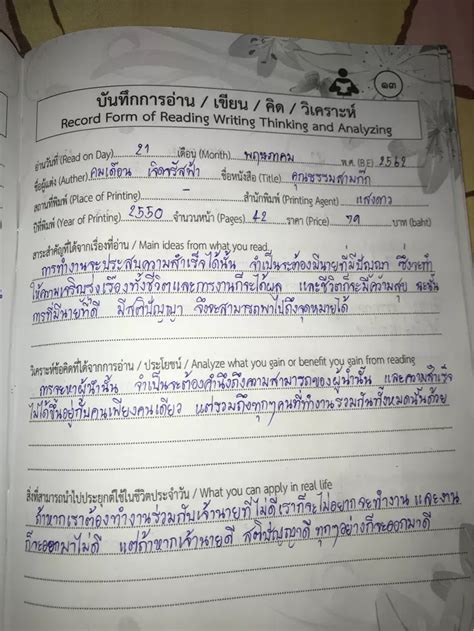 ๑๓
บันทึกการอ่าน / เขียน / คิด / วิเคราะห์
Record Form of Reading Writing Thinking and Analyzing
อ่านวันที่ (Read on Day) 21 เดือน (Month) พฤษภาคม พ.ศ. (B.E) 2562
ชื่อผู้แต่ง (Auther) คมเดือน เจิดจรัสฟ้า ชื่อหนังสือ (Title) คุณธรรมสามก๊ก
สถานที่พิมพ์ (Place of Printing) สำนักพิมพ์ (Printing Agent) แสงดาว
ปีที่พิมพ์ (Year of Printing) 2550 จำนวนหน้า (Pages) 42 ราคา (Price) 79 บาท (baht)
สาระสำคัญที่ได้จากเรื่องที่อ่าน / Main ideas from what you read
การทำงานจะประสบความสำเร็จได้นั้น จำเป็นจะต้องมีนายที่มีปัญญา ซึ่งจะทำ
ให้ความเจริญรุ่งเรืองทั้งชีวิตและการงานก็จะได้ผล และชีวิตก็จะมีความสุข ฉะนั้น
การที่มีนายที่ดี มีสติปัญญา จึงจะสามารถพาไปถึงจุดหมายได้
วิเคราะห์ข้อคิดที่ได้จากการอ่าน / ประโยชน์ / Analyze what you gain or benefit you gain from reading
การจะหาผู้นำนั้น จำเป็นจะต้องคำนึงถึงความสามารถของผู้นำนั้น และความสำเร็จ
ไม่ได้ขึ้นอยู่กับคนเพียงคนเดียว แต่รวมถึงทุกๆคนที่ทำงานร่วมกันทั้งหมดนั้นด้วย
สิ่งที่สามารถนำไปประยุกต์ใช้ในชีวิตประจำวัน / What you can apply in real life
ถ้าหากเราต้องทำงานร่วมกับเจ้านายที่ไม่ดีเราก็จะไม่อยากจะทำงาน และงาน
ก็จะออกมาไม่ดี แต่ถ้าหากเจ้านายดี สติปัญญาดี ทุกๆอย่างก็จะออกมาดี